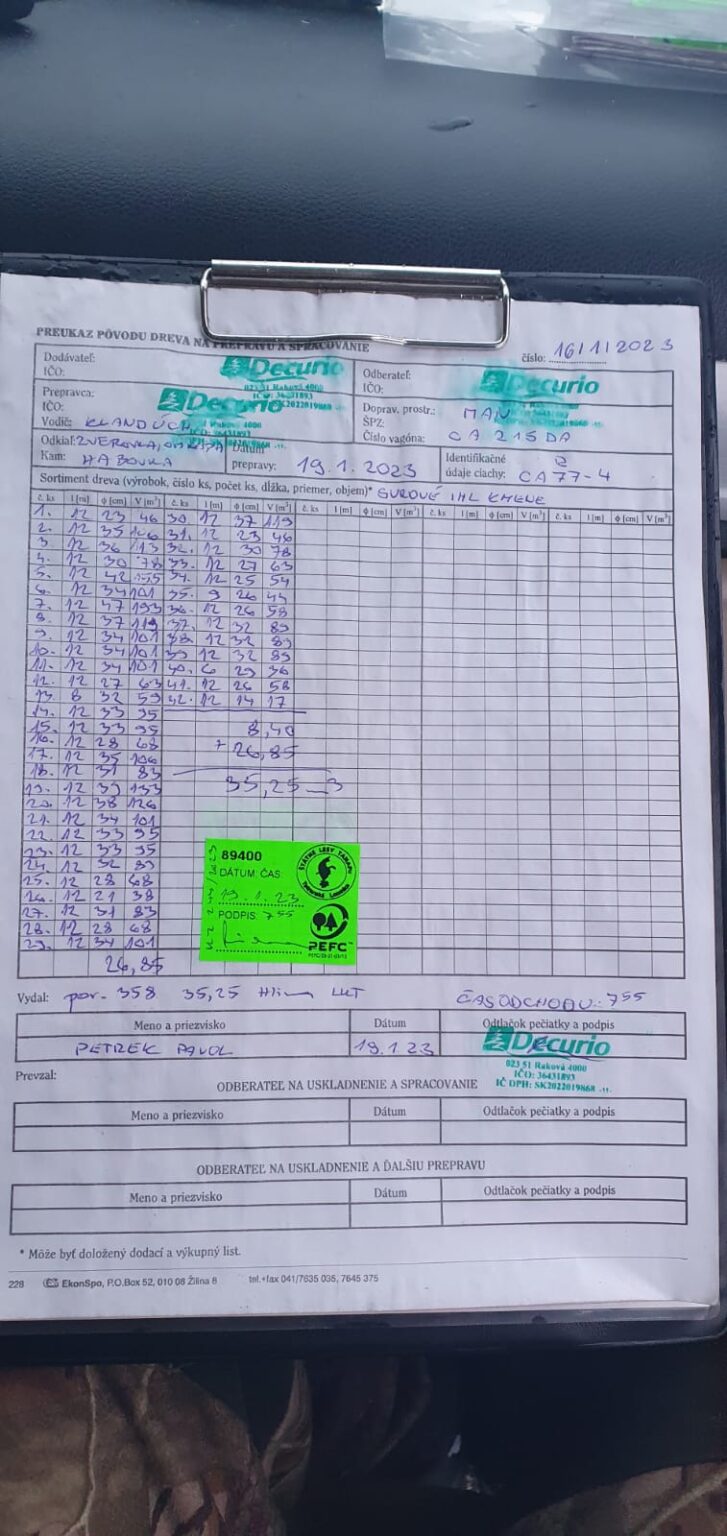 PREUKAZ PÔVODU DREVA NA PREPRAVU A SPRACOVANIE
číslo: 16/1/2023
Dodávateľ:
IČO:
Decurio
023 51 Raková 4000
IČO: 36431893
Odberateľ:
IČO:
Decurio
Prepravca:
IČO:
Decurio
Vodič: KLANDUCH
Doprav. prostr.: MAN
ŠPZ:
Číslo vagóna: CA 215 DA
Odkiaľ: ZVEROVKA,
Kam: HABOVKA
Dátum
prepravy: 19.1.2023
Identifikačné
údaje ciachy: CA77-4
Sortiment dreva (výrobok, číslo ks, počet ks, dĺžka, priemer, objem)* IHL KMENE
č. ks l [m] ϕ [cm] V [m³] č. ks l [m] ϕ [cm] V [m³] č. ks l [m] ϕ [cm] V [m³] č. ks l [m] ϕ [cm] V [m³] č. ks l [m] ϕ [cm] V [m³]
1. 12 23 46 30 12 37 119
2. 12 35 106 31. 12 23 46
3. 12 36 113 32. 12 30 78
4. 12 30 78 33. 12 27 63
5. 12 42 155 34. 12 25 54
6. 12 34 101 35. 9 26 44
7. 12 47 193 36. 12 26 58
8. 12 37 119 37. 12 32 89
9. 12 34 101 38. 12 32 89
10. 12 34 101 39 12 32 89
11. 12 34 101 40. 6 29 36
12. 12 27 63 41. 12 26 58
13 8 32 59 42. 12 14 17
14. 12 33 95
15. 12 33 95 8,40
16. 12 28 68 + 26,85
17. 12 35 106
18. 12 31 83 35,25
19. 12 39 133
20. 12 38 126
21. 12 34 101
22. 12 33 95
23. 12 33 95
24. 12 32 89
25. 12 28 68
26. 12 21 38
27. 12 31 83
28. 12 28 68
29. 12 34 101
26,85
89400
DÁTUM ČAS:
19.1.23
PODPIS: 7 55
ŠTÁTNE LESY TANAPU
PEFC
Vydal: por. 358 35,25
ČAS ODCHODU: 7 55
Meno a priezvisko Dátum Odtlačok pečiatky a podpis
PETREK PAVOL 19.1.23
Decurio
023 51 Raková 4000
IČO: 36431893
IČ DPH: SK2022019868
Prevzal:
ODBERATEĽ NA USKLADNENIE A SPRACOVANIE
Meno a priezvisko Dátum Odtlačok pečiatky a podpis
ODBERATEĽ NA USKLADNENIE A ĎALŠIU PREPRAVU
Meno a priezvisko Dátum Odtlačok pečiatky a podpis
* Môže byť doložený dodací a výkupný list.
228 EkonSpo, P.O.Box 52, 010 08 Žilina 8 tel.+fax 041/7635 035, 7645 375